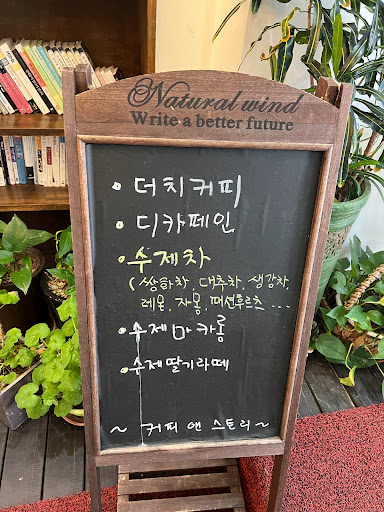 Natural wind
Write a better future
• 더치커피
• 디카페인
• 수제차
( 쌍화차, 대추차, 생강차,
레몬, 자몽, 패션후르츠 ...
• 수제 마카롱
• 수제딸기라떼
~ 커피 앤 스토리 ~